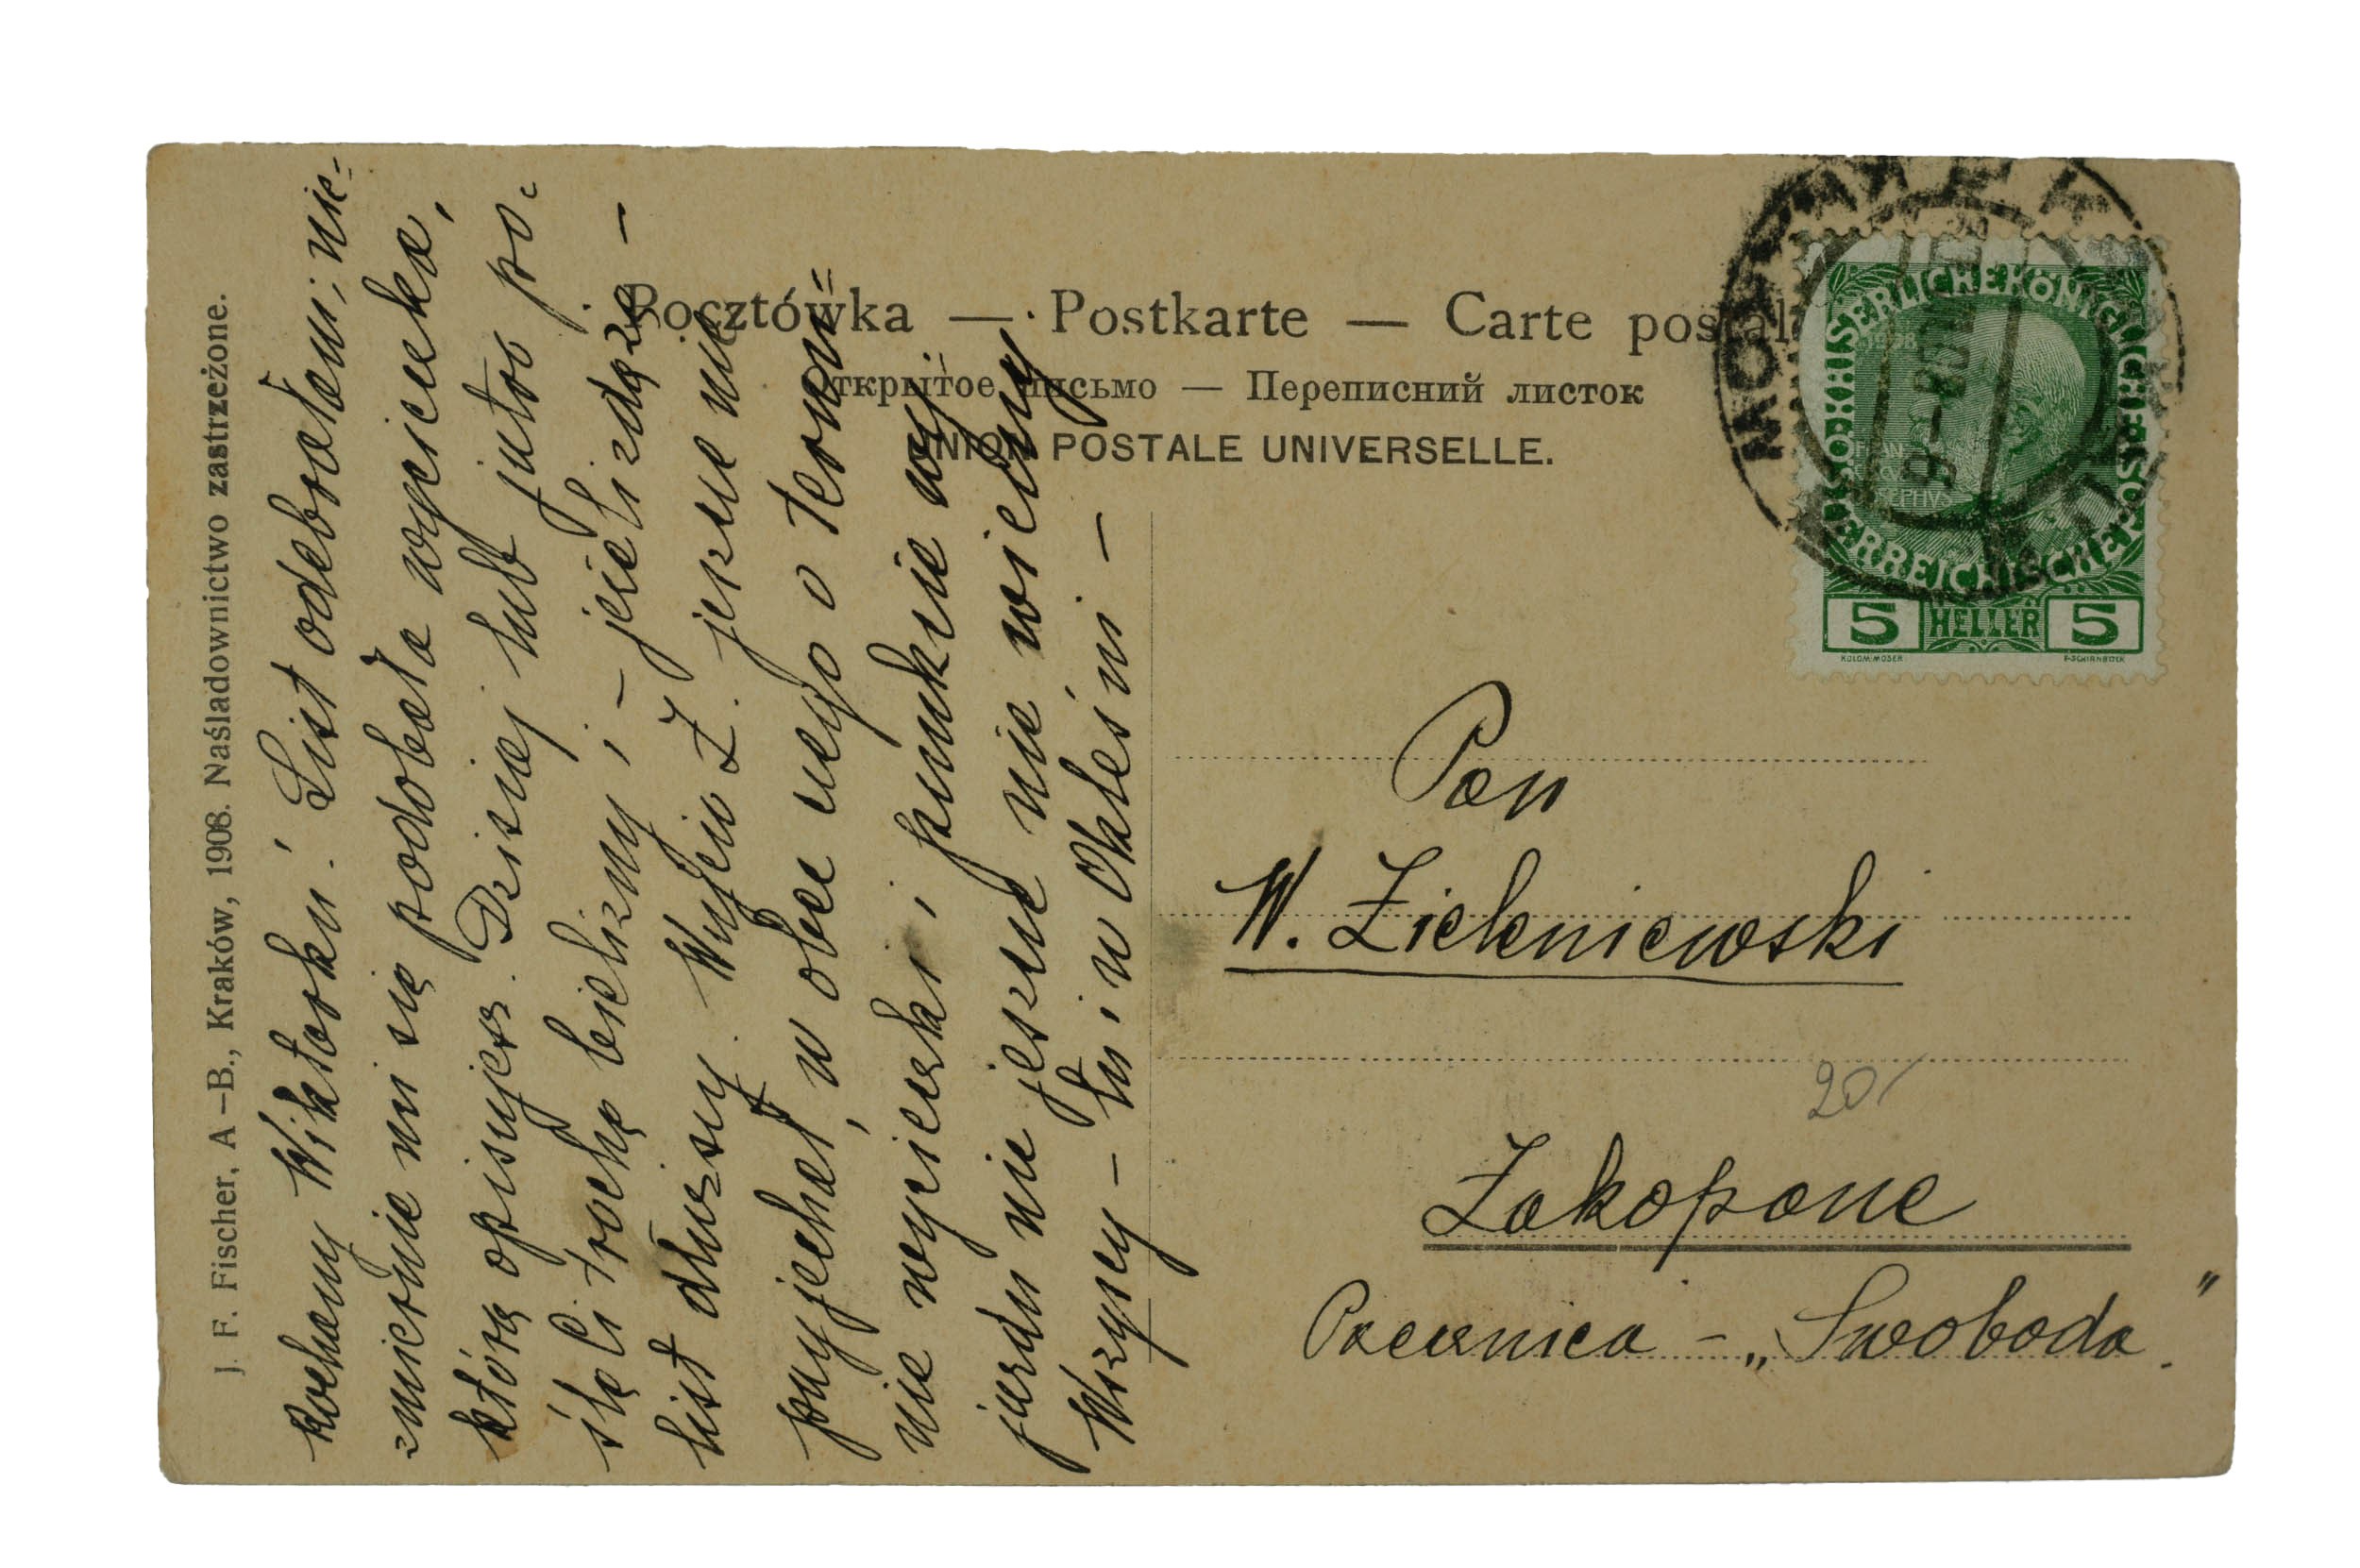 J. F. Fischer, A—B., Kraków, 1908. Naśladownictwo zastrzeżone.
Kochany Wiktorku! List odebrałem; nie-
zmiernie mi się podobała wycieczka,
którą opisujesz. Dzisiaj lub jutro po-
ślę Ci trochę bielizny i — jeśli zdążę —
list dłuższy. Wujcio Z. jeszcze nie
przyjechał, w obec czego o termi=
nie wycieczki i punkcie wy=
jazdu nie jeszcze nie wiemy.
Wszyscy — tu i w Okleśni —
Pocztówka — Postkarte — Carte postal
Открытое письмо — Переписний листок
UNION POSTALE UNIVERSELLE.
KAISERLICHE KÖNIGLICHE
ÖSTERREICHISCHE
1908
5 HELLER 5
KOLOM.MOSER
F.SCHIRNBÖCK
Pan
W. Zieleniewski
20
Zakopane
Pracownica — „Swoboda."